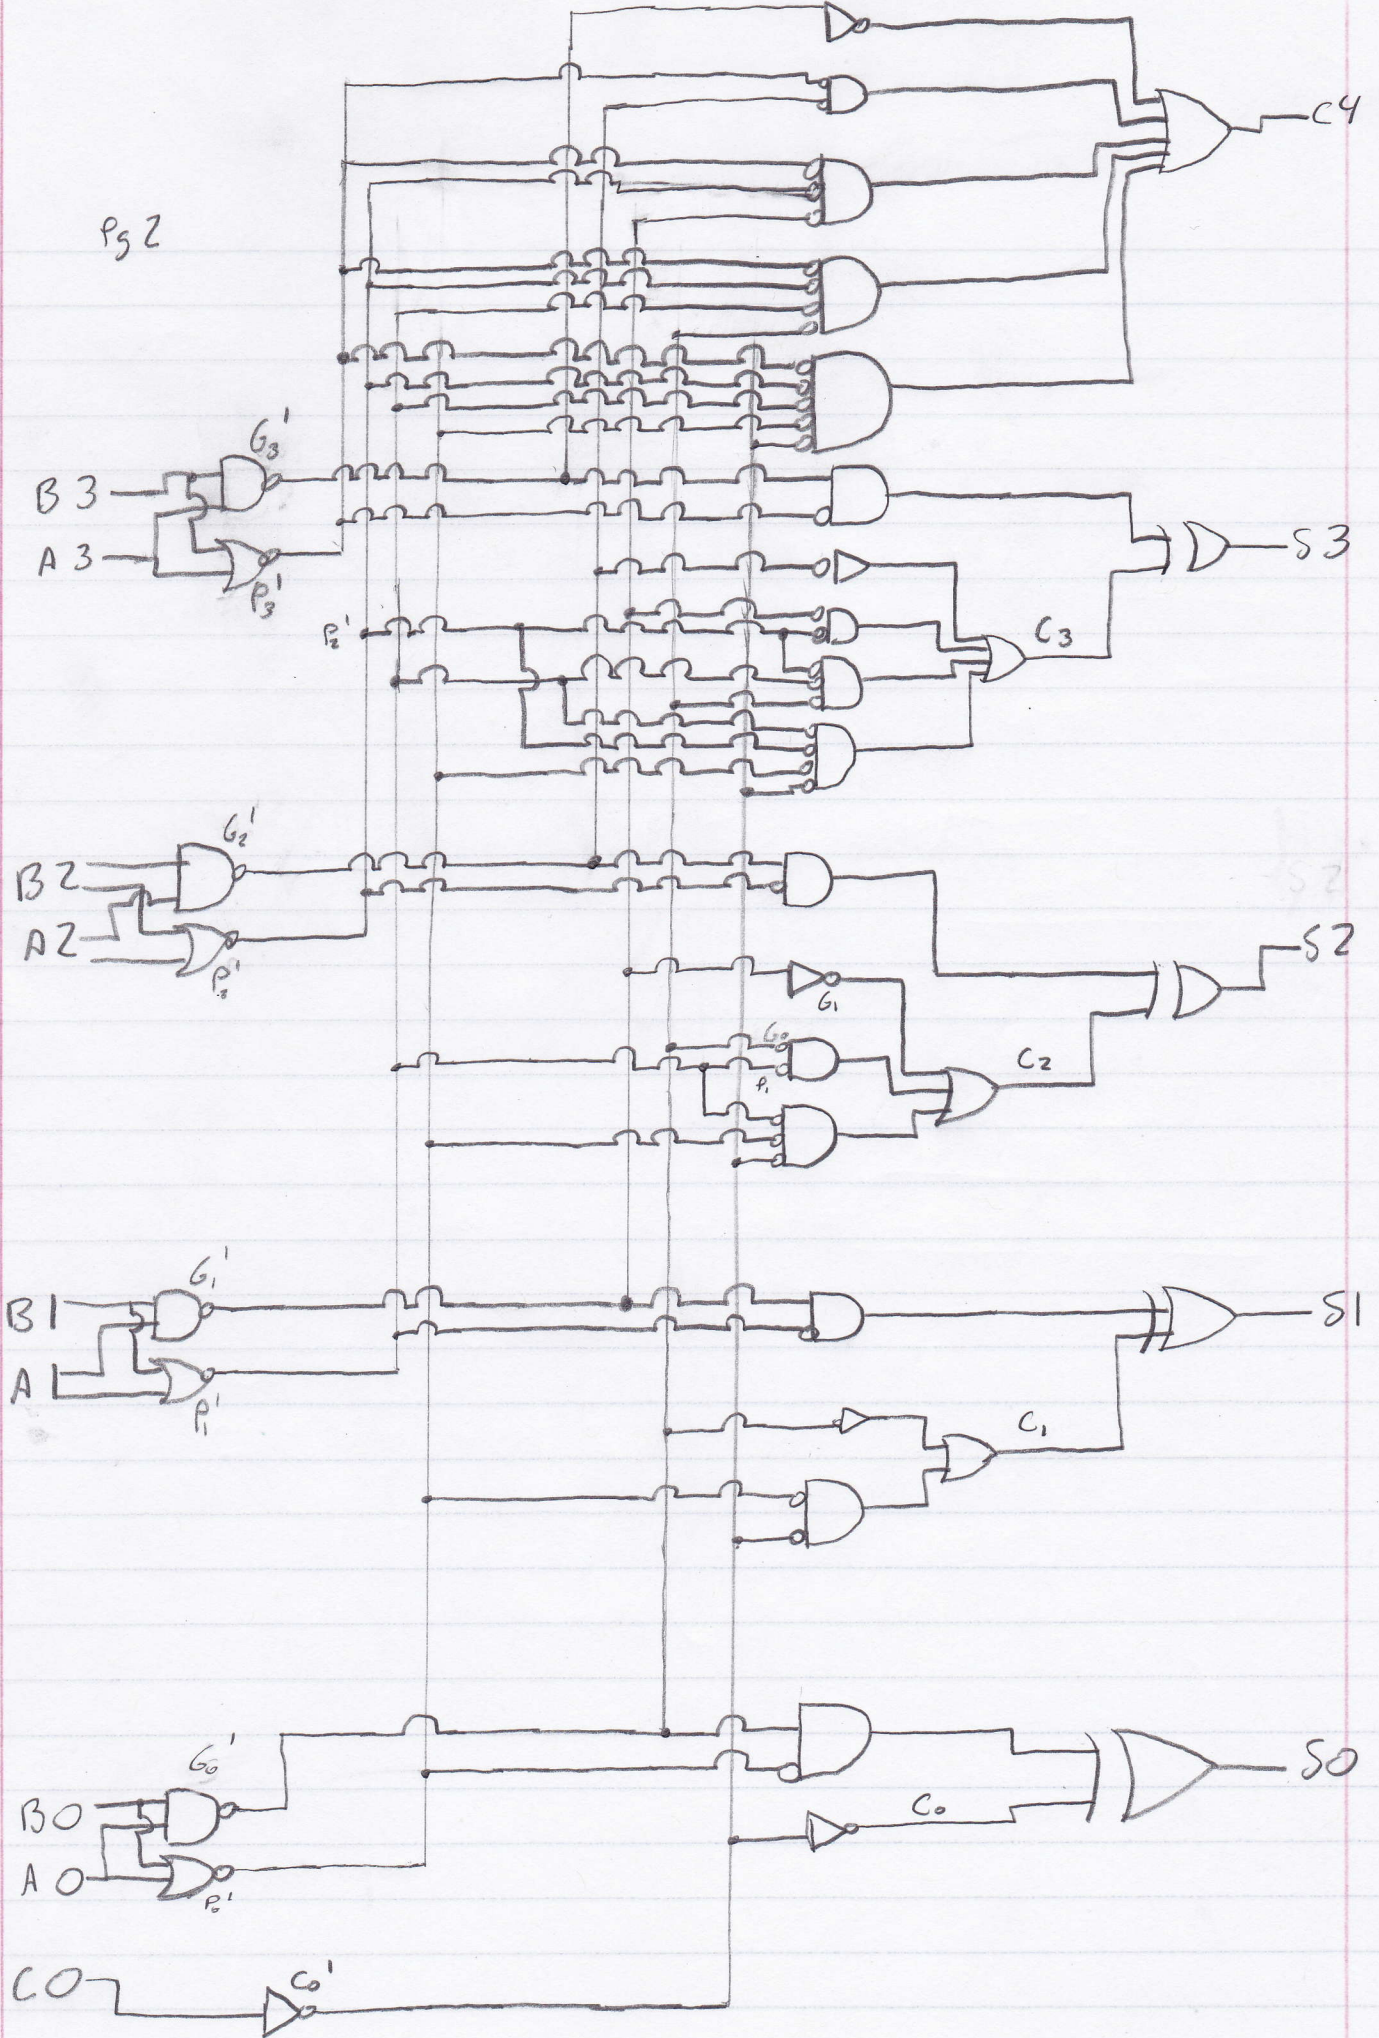 C4
Pg 2
G3'
B3
A3
P3'
S3
P2'
C3
G2'
B2
A2
P2'
S2
G1
G0
P1
C2
G1'
B1
A1
P1'
S1
C1
G0'
B0
A0
P0'
S0
C0
C0
C0'